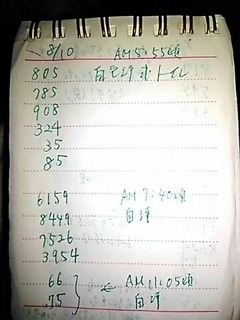 8/10 AM 5:55頃
805 自宅洋式トイレ
785
908
324
35
85
6159 AM 7:40頃
8449 自洋
7526
3954
66 ← AM 11:05頃
75 自洋